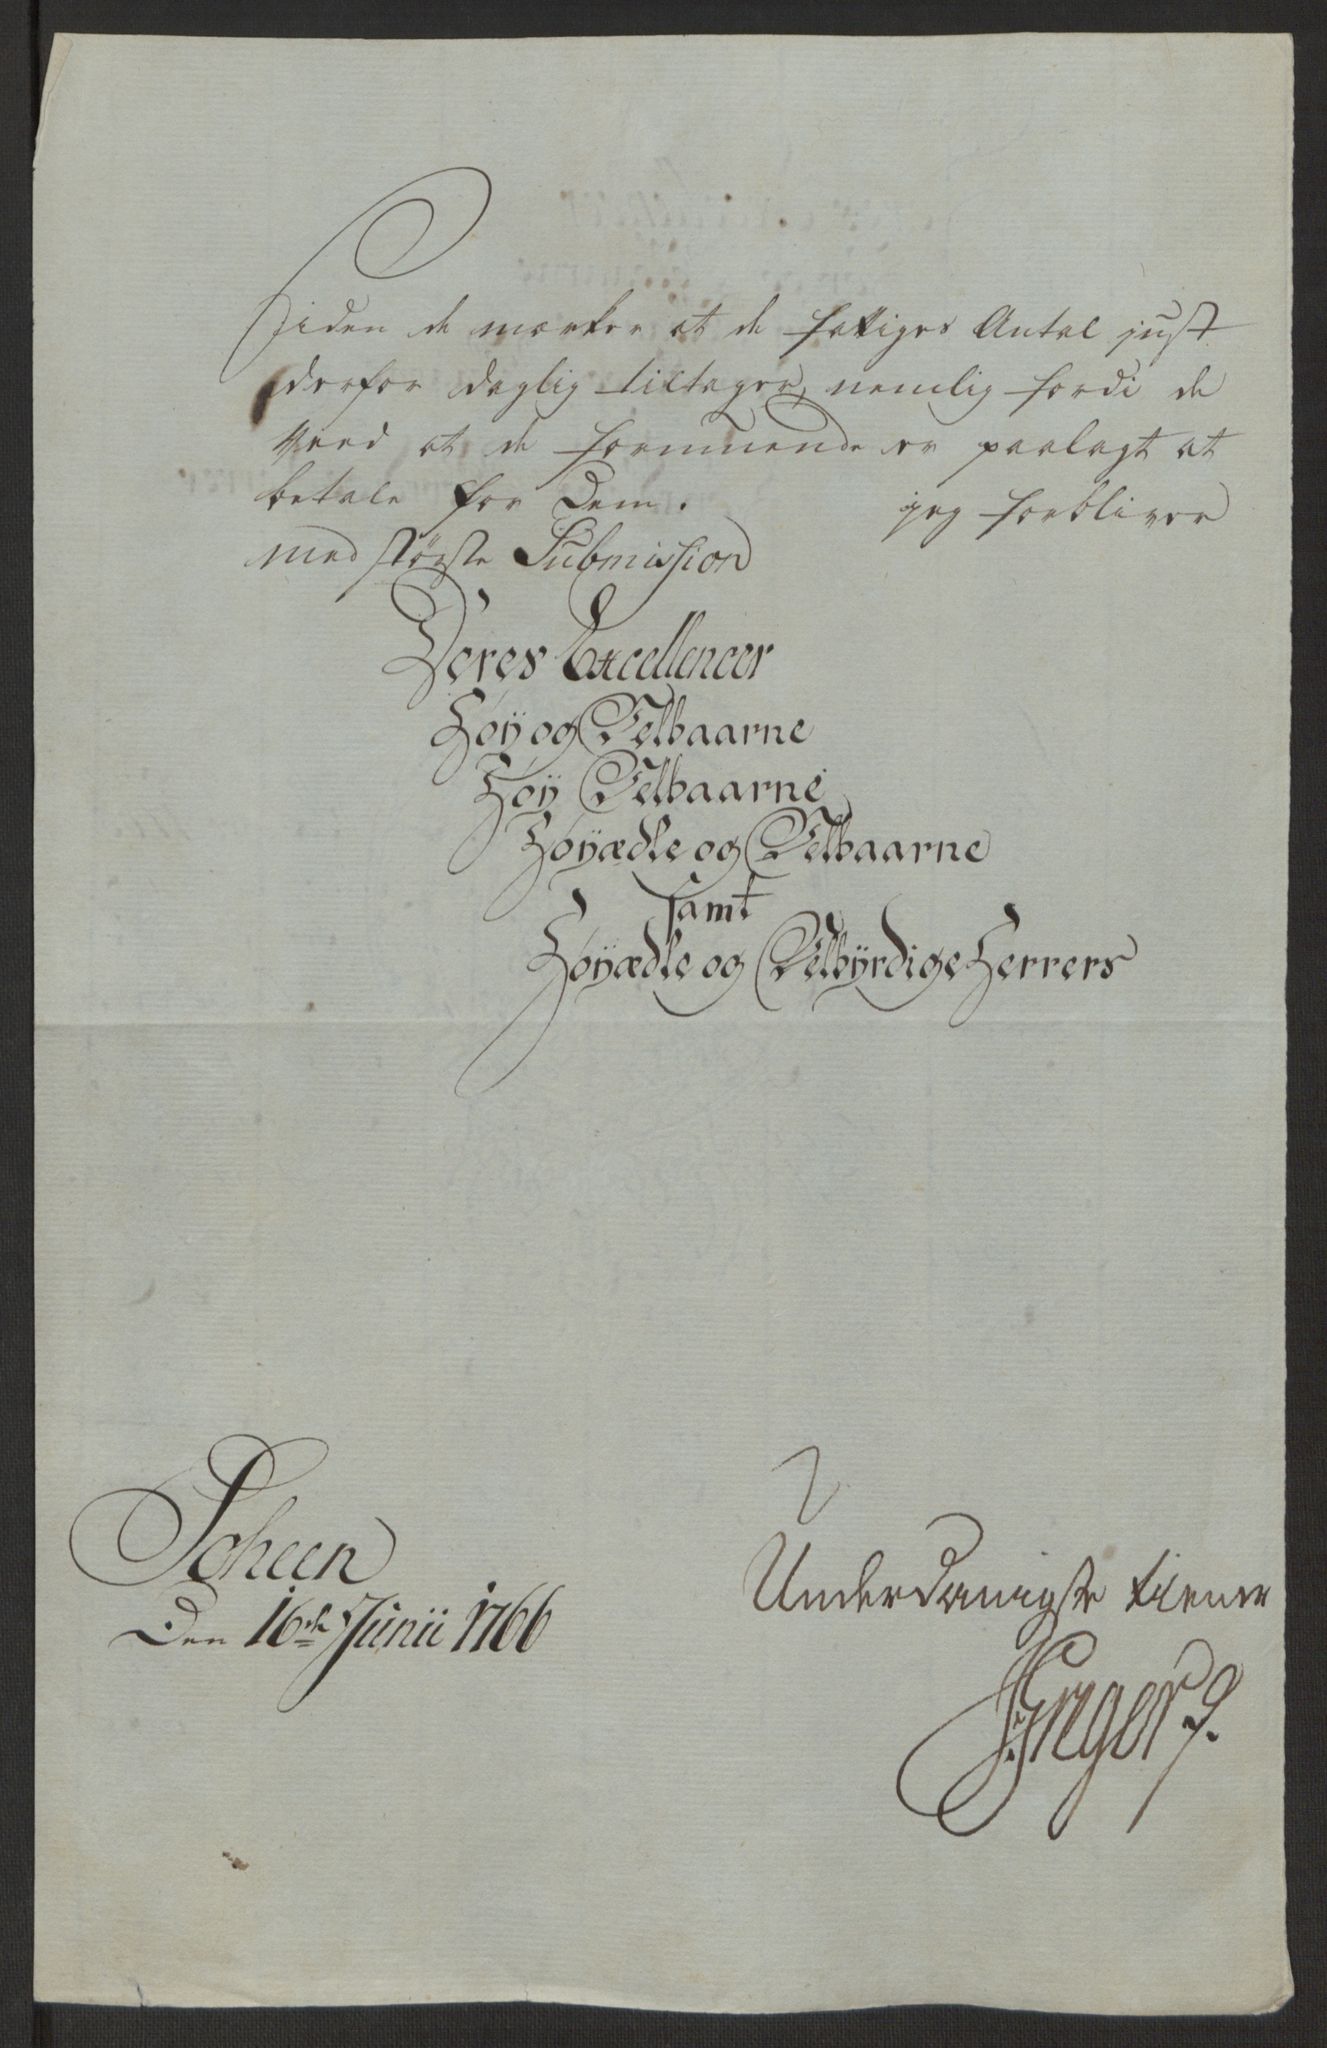 Siden de mærker at de fattiges Antal just
derfor daglig tiltager, nemlig fordi de
veed at de formuende er paalagt at
betale for Dem. jeg forbliver
med største Submission
Deres Excellencer
Høÿ og Velbaarne
Høÿ Velbaarne
Høÿædle og Velbaarne
samt
Høÿædle og Velbÿrdige Herrers
Scheen
Den 16de Junii 1766
Underdanigste tiener